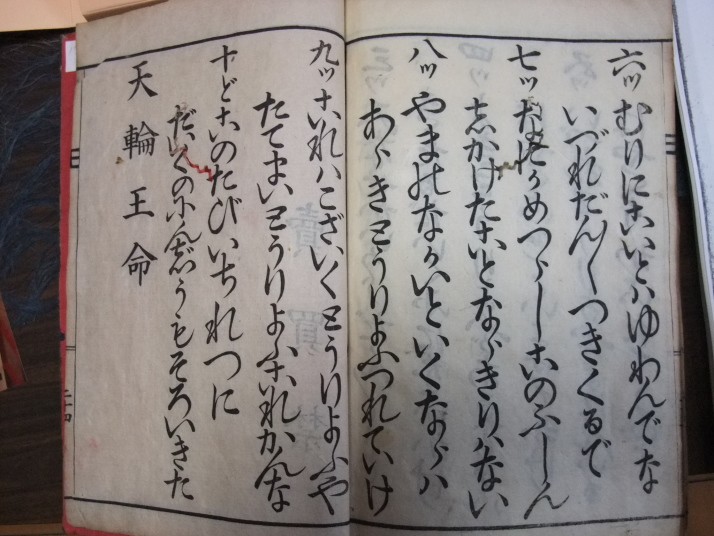 六ツ むりにこいとハゆわんでな
いづれだん〳〵つきくるで
七ツ なにかめつらしこのふしん
しかけたこいとならきりハない
八ツ やまのなかいといくならハ
あらきとうりよふつれていけ
九ツ これハこざいくとうりよふや
たてまいとうりよふこれかんな
十ど このたびいちれつに
だいくのにんぢうもそろいきた
天輪王命
二十四